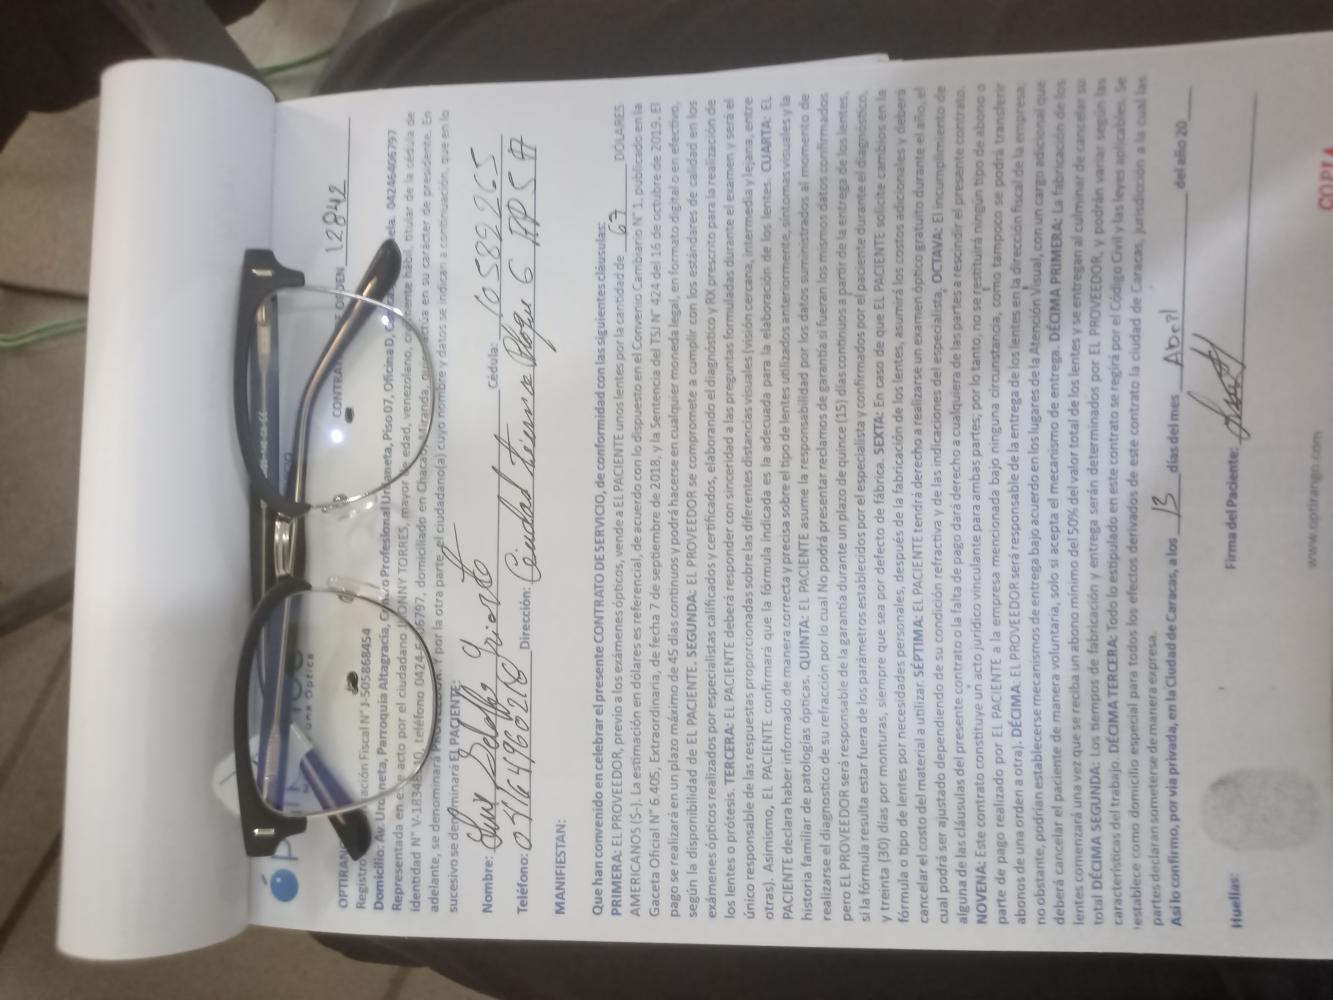 CONTRA DE ORDEN 12842
OPTIRAN
Registro ación Fiscal N° J-505868454
Domicilio: Av. Urdaneta, Parroquia Altagracia, Profesional Urdaneta, Piso 07, Oficina D, ela. 04246406797
Representada en este acto por el ciudadano JHONNY TORRES, mayor de edad, venezolano, hábil, titular de la cédula de
identidad N° teléfono 0424- 6797, domiciliado en Chacao, Miranda, actúa en su carácter de presidente. En
adelante, se denominará Y por la otra parte, el ciudadano(a) cuyo nombre y datos se indican a continuación, que en lo
sucesivo se denominará EL PACIENTE:
Nombre: Cédula:
Teléfono: Dirección: Ciudad
MANIFIESTAN:
Que han convenido en celebrar el presente CONTRATO DE SERVICIO, de conformidad con las siguientes cláusulas:
PRIMERA: EL PROVEEDOR, previo a los exámenes ópticos, vende a EL PACIENTE unos lentes por la cantidad de 67 DÓLARES
AMERICANOS ($-). La estimación en dólares es referencial, de acuerdo con lo dispuesto en el Convenio Cambiario N° 1, publicado en la
Gaceta Oficial N° 6.405, Extraordinaria, de fecha 7 de septiembre de 2018, y la Sentencia del TSJ N° 424 del 16 de octubre de 2019. El
pago se realizará en un plazo máximo de 45 días continuos y podrá hacerse en cualquier moneda legal, en formato digital o en efectivo,
según la disponibilidad de EL PACIENTE. SEGUNDA: EL PROVEEDOR se compromete a cumplir con los estándares de calidad en los
exámenes ópticos realizados por especialistas calificados y certificados, elaborando el diagnóstico y RX prescrito para la realización de
los lentes o prótesis. TERCERA: EL PACIENTE deberá responder con sinceridad a las preguntas formuladas durante el examen y será el
único responsable de las respuestas proporcionadas sobre las diferentes distancias visuales (visión cercana, intermedia y lejana, entre
otras). Asimismo, EL PACIENTE confirmará que la fórmula indicada es la adecuada para la elaboración de los lentes. CUARTA: EL
PACIENTE declara haber informado de manera correcta y precisa sobre el tipo de lentes utilizados anteriormente, síntomas visuales y la
historia familiar de patologías ópticas. QUINTA: EL PACIENTE asume la responsabilidad por los datos suministrados al momento de
realizarse el diagnostico de su refracción por lo cual No podrá presentar reclamos de garantía si fueran los mismos datos confirmados
pero EL PROVEEDOR será responsable de la garantía durante un plazo de quince (15) días continuos a partir de la entrega de los lentes,
si la fórmula resulta estar fuera de los parámetros establecidos por el especialista y confirmados por el paciente durante el diagnóstico,
y treinta (30) días por monturas, siempre que sea por defecto de fábrica. SEXTA: En caso de que EL PACIENTE solicite cambios en la
fórmula o tipo de lentes por necesidades personales, después de la fabricación de los lentes, asumirá los costos adicionales y deberá
cancelar el costo del material a utilizar. SÉPTIMA: EL PACIENTE tendrá derecho a realizarse un examen óptico gratuito durante el año, el
cual podrá ser ajustado dependiendo de su condición refractiva y de las indicaciones del especialista. OCTAVA: El incumplimiento de
alguna de las cláusulas del presente contrato o la falta de pago dará derecho a cualquiera de las partes a rescindir el presente contrato.
NOVENA: Este contrato constituye un acto jurídico vinculante para ambas partes; por lo tanto, no se restituirá ningún tipo de abono o
parte de pago realizado por EL PACIENTE a la empresa mencionada bajo ninguna circunstancia, como tampoco se podrá transferir
abonos de una orden a otra). DÉCIMA: EL PROVEEDOR será responsable de la entrega de los lentes en la dirección fiscal de la empresa;
no obstante, podrían establecerse mecanismos de entrega bajo acuerdo en los lugares de la Atención Visual, con un cargo adicional que
deberá cancelar el paciente de manera voluntaria, solo si acepta el mecanismo de entrega. DÉCIMA PRIMERA: La fabricación de los
lentes comenzará una vez que se reciba un abono mínimo del 50% del valor total de los lentes y se entregan al culminar de cancelar su
total DÉCIMA SEGUNDA: Los tiempos de fabricación y entrega serán determinados por EL PROVEEDOR, y podrán variar según las
características del trabajo. DÉCIMA TERCERA: Todo lo estipulado en este contrato se regirá por el Código Civil y las leyes aplicables. Se
establece como domicilio especial para todos los efectos derivados de este contrato la ciudad de Caracas, jurisdicción a la cual las
partes declaran someterse de manera expresa.
Así lo confirmo, por vía privada, en la Ciudad de Caracas, a los 13 días del mes Abril del año 20
Huellas: Firma del Paciente:
www.optirango.com
COPIA